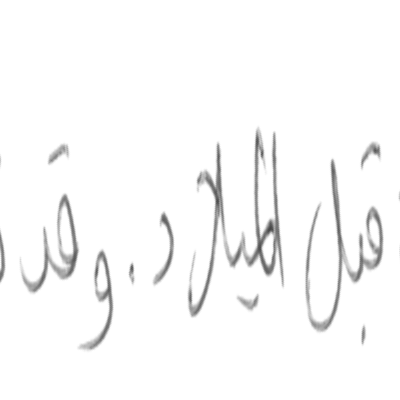 قبل الميلاد. وقد